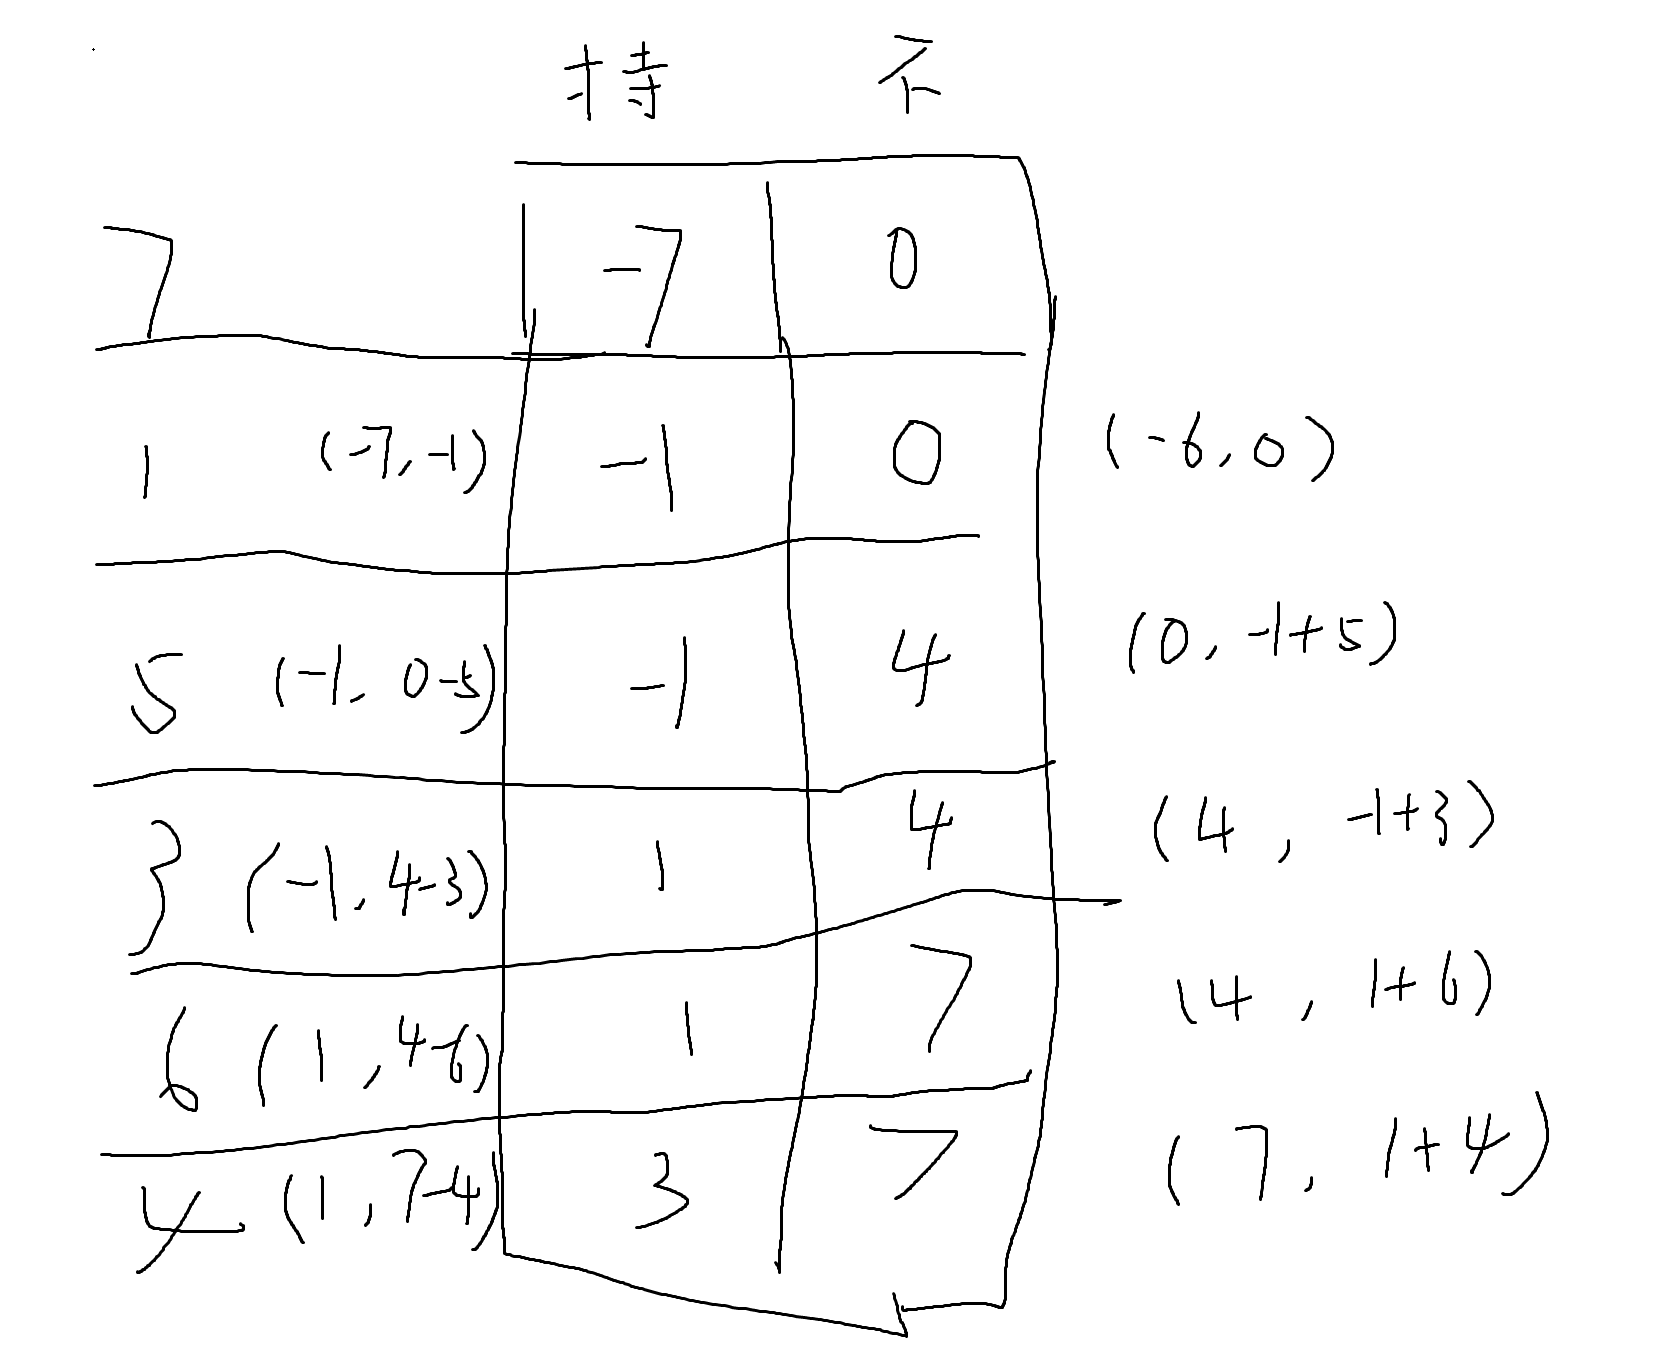 持 不
7 -7 0
1 (-7,-1) -1 0 (-6,0)
5 (-1, 0-5) -1 4 (0,-1+5)
3 (-1,4-3) 1 4 (4,-1+3)
6 (1,4-6) 1 7 (4,1+6)
4 (1,7-4) 3 7 (7,1+4)